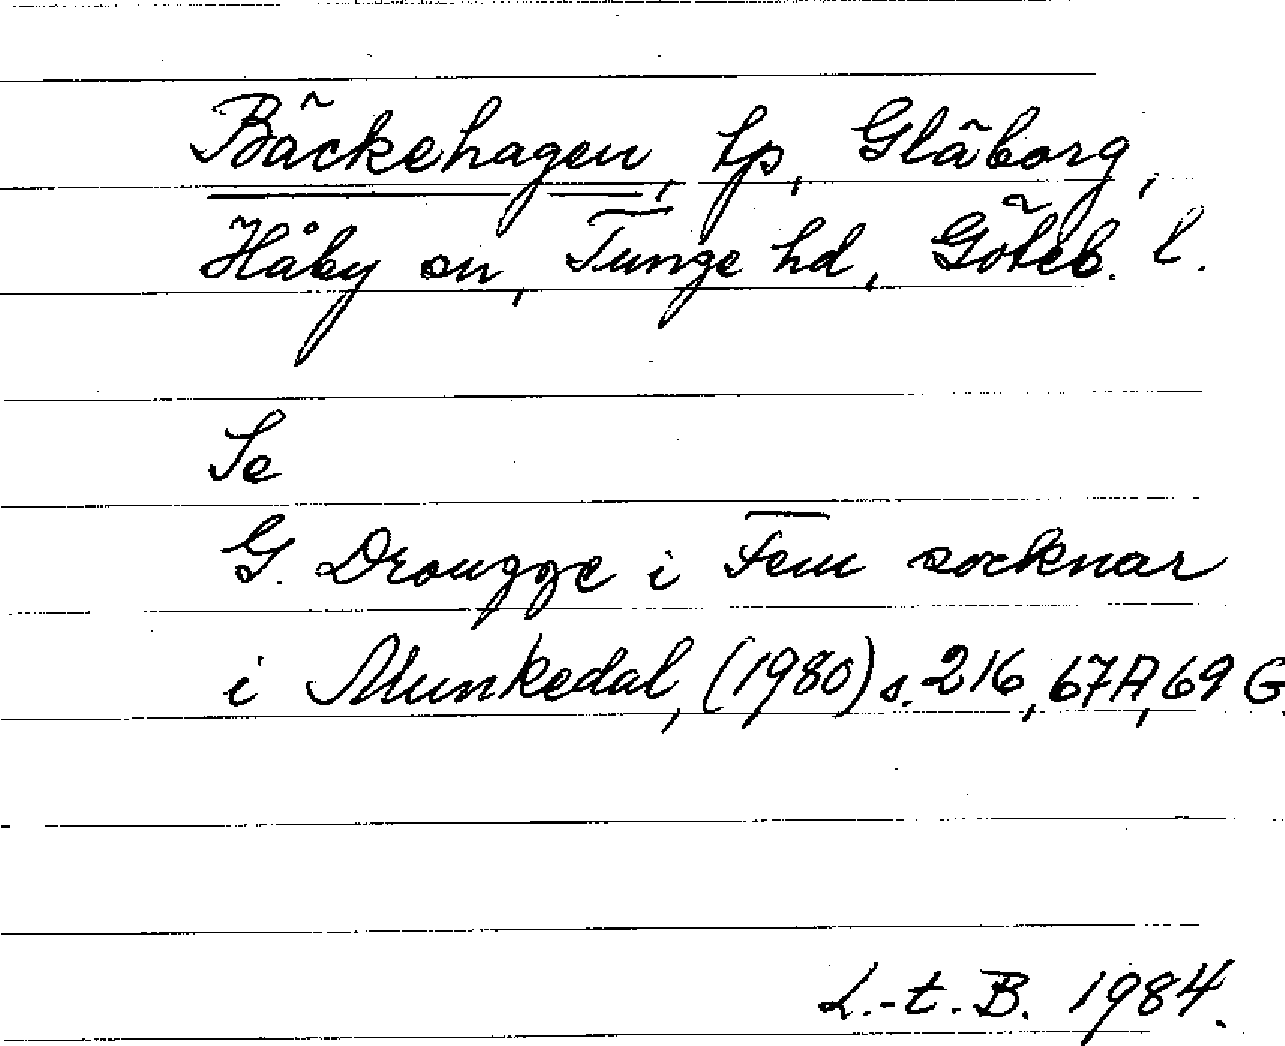 Bäckehagen, tp, Gläborg,
Håby sn, Tunge hd, Göteb. l.
Se
G. Drougge i Fem socknar
i Munkedal, (1980) s. 216, 67A, 69 G.
L.-t. B. 1984.